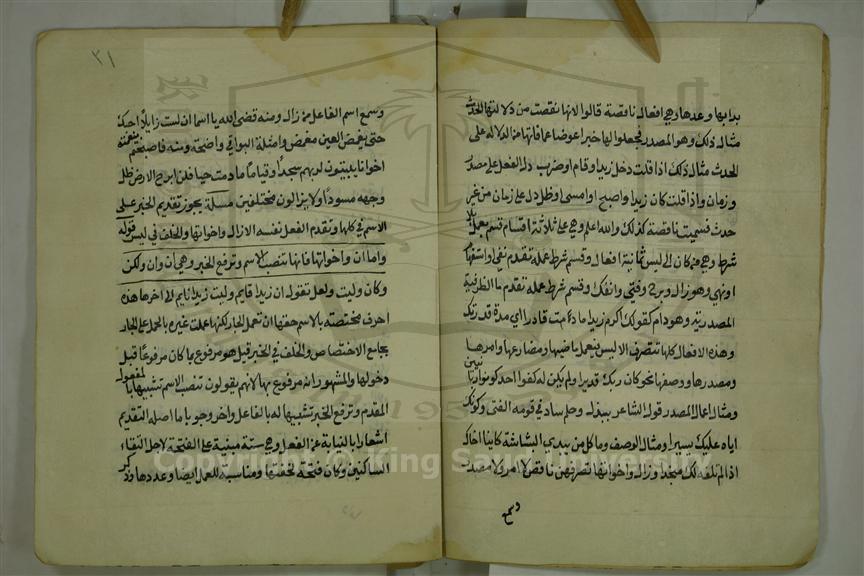 بدابها وعدها وهي افعال ناقصة قالوا لانها نقصت من دلالتها الحدث
مثاله ذلك وهو المصدر فجعلوا لها خبرا عوضا عما فاتها من الدلالة على
الحدث مثال ذلك اذا قلت دخل زيد وقام او ضرب دل الفعل على مصدر
وزمان واذا قلت كان زيدا واصبح او امسى او ظل دل على زمان من غير
حدث فسميت ناقصة لذلك والله اعلم وهي على ثلاثة اقسام قسم يعمل بلا
شرط وهي من كان الى ليس ثمانية افعال وقسم شرط عمله تقدم نفي او استفهام
او نهي وهو زال وبرح وفتئ وانفك وقسم شرط عمله تقدم ما الظرفية
المصدرية وهو دام كقولك اكرم زيدا ما دامت قادرا اي مدة قدرتك
وهذه الافعال كلها تتصرف الا ليس فيعمل ماضيها ومضارعها وامرها
ومصدرها ووصفها نحو كان ربك قديرا ولم يكن له كفوا احد كونوا ربانيين
ومثال اعمال المصدر قول الشاعر ببذل وحلم ساد في قومه الفتى وكونك
اياه عليك يسير ومثال الوصف وما كل من يبدي البشاشة كاينا اخاك
اذا لم تلفه لك منجدا وزال واخواتها تصرفهن ناقص لا امر ولا مصدر
وسمع
٢١
وسمع اسم الفاعل من زال ومنه قضى الله يا اسما ان لست زايلا احبك
حتى يغمض العين مغمض وامثلة البواقي واضحة ومنه فاصبحتم بنعمته
اخوانا يبيتون لربهم سجدا وقياما ما دمت حيا فلن ابرح الارض ظل
وجهه مسودا ولا يزالون مختلفين مسئلة يجوز تقديم الخبر على
الاسم في كلها وتقدم الفعل نفسه الا زال واخواتها والخلف في ليس قوله
واما ان واخواتها فانها تنصب الاسم وترفع الخبر وهي ان وان ولكن
وكان وليت ولعل تقول ان زيدا قايم وليت زيدا نايم الى اخرها هذه
احرف مختصة بالاسم حقها ان تعمل الجار لكنها عملت غيره بالحمل على الجار
بجامع الاختصاص والخلف في الخبر قيل هو مرفوع بما كان مرفوعا قبل
دخولها والمشهور انه مرفوع بها لانهم يقولون تنصب الاسم تشبيها بالمفعول
المقدم وترفع الخبر تشبيها له بالفاعل واخر وجوبا ما اصله التقديم
اشعارا بالنيابة عن الفعل وهي ستة مبنية على الفتحة لاجل التقاء
الساكنين وكان فتحة لخفتها ومناسبة للعمل ايضا وعددها وذكر
Copyright © King Saud University
1957